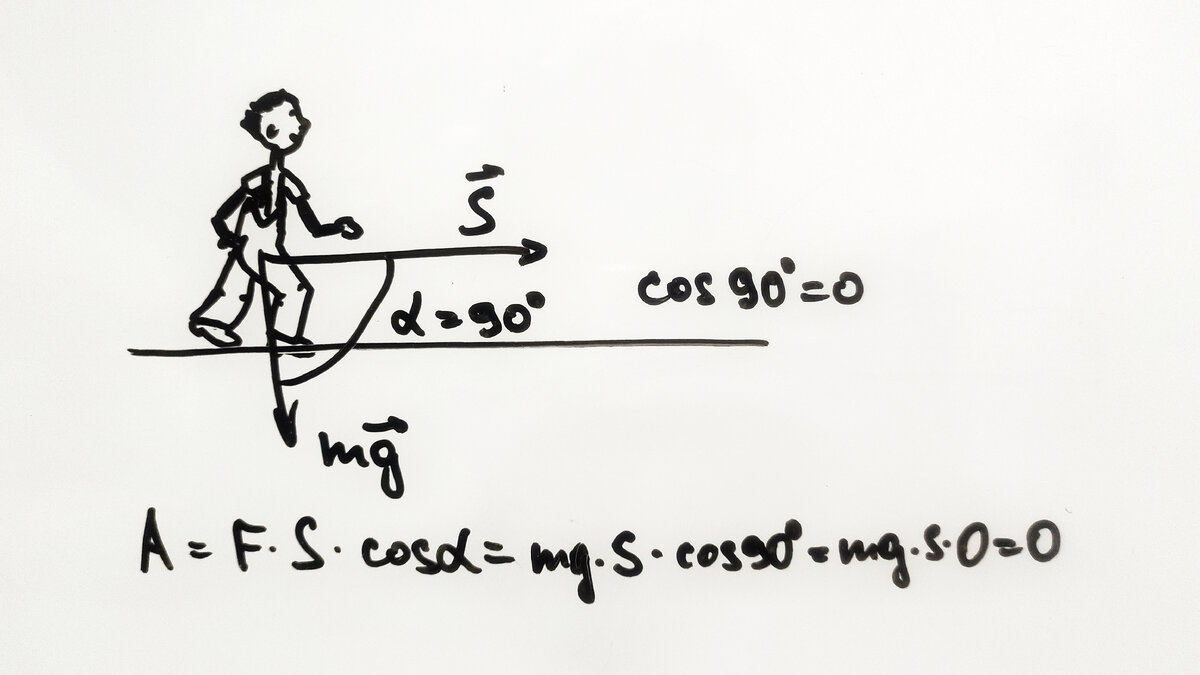 S⃗
cos 90° = 0
α = 90°
mg⃗
A = F · S · cosα = mg · S · cos90° = mg · s · 0 = 0